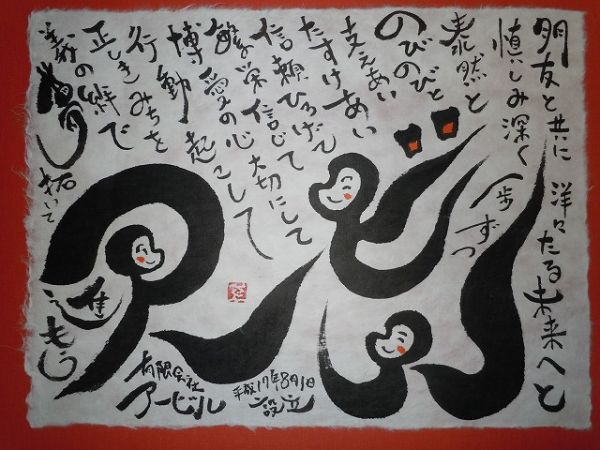 朋友と共に 洋々たる未来へと
慎しみ深く 一歩ずつ
泰然と
のびのびと
支えあい
たすけあい
信頼ひろげて
繁栄信じて 大切にして
博愛の心 起こして
行動
正しきみちを
義の絆で
拓いて
進もう
アービル
有限会社
アービル
平成17年8月1日
設立